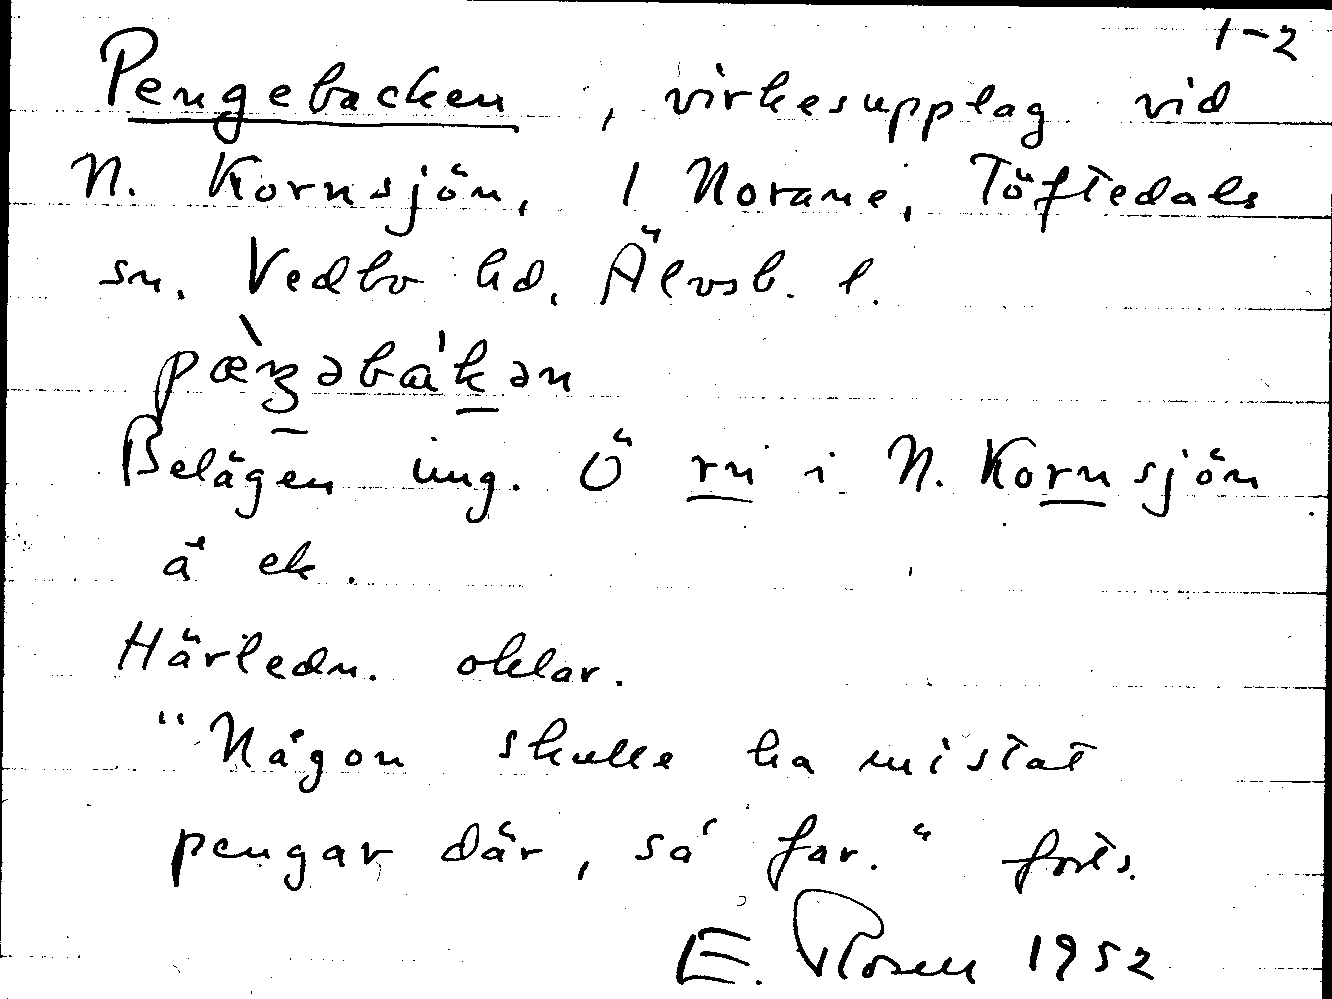 1-2
Pengebacken, virkesupplag vid
N. Kornsjön, 1 Norane, Töftedals
sn. Vedbo hd. Älvsb. l.
pæ̀ŋəbàkən
Belägen ung. Ö rn i N. Kornsjön
å ek.
Härledn. oklar.
"Någon skulle ha mistat
pengar där, sa' far." forts.
E. Rosell 1952